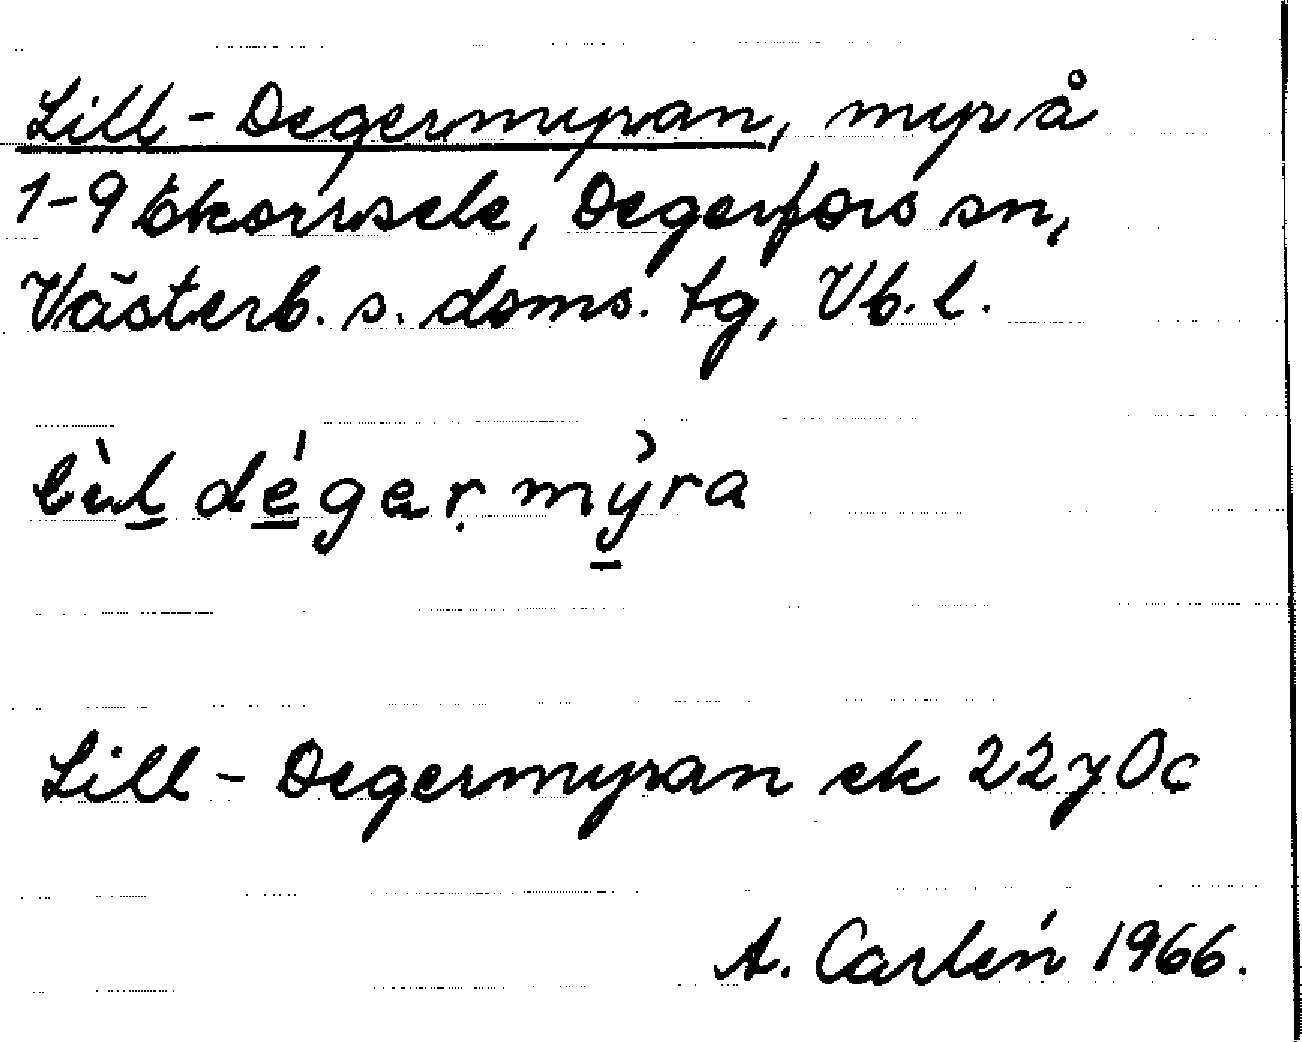 Lill-Degermyran, myr å
1-9 Ekorrsele, Degerfors sn,
Västerb. s. doms. tg, Vb. l.
lìl dégermỳra
Lill-Degermyran ek 22y0c
A. Carlén 1966.